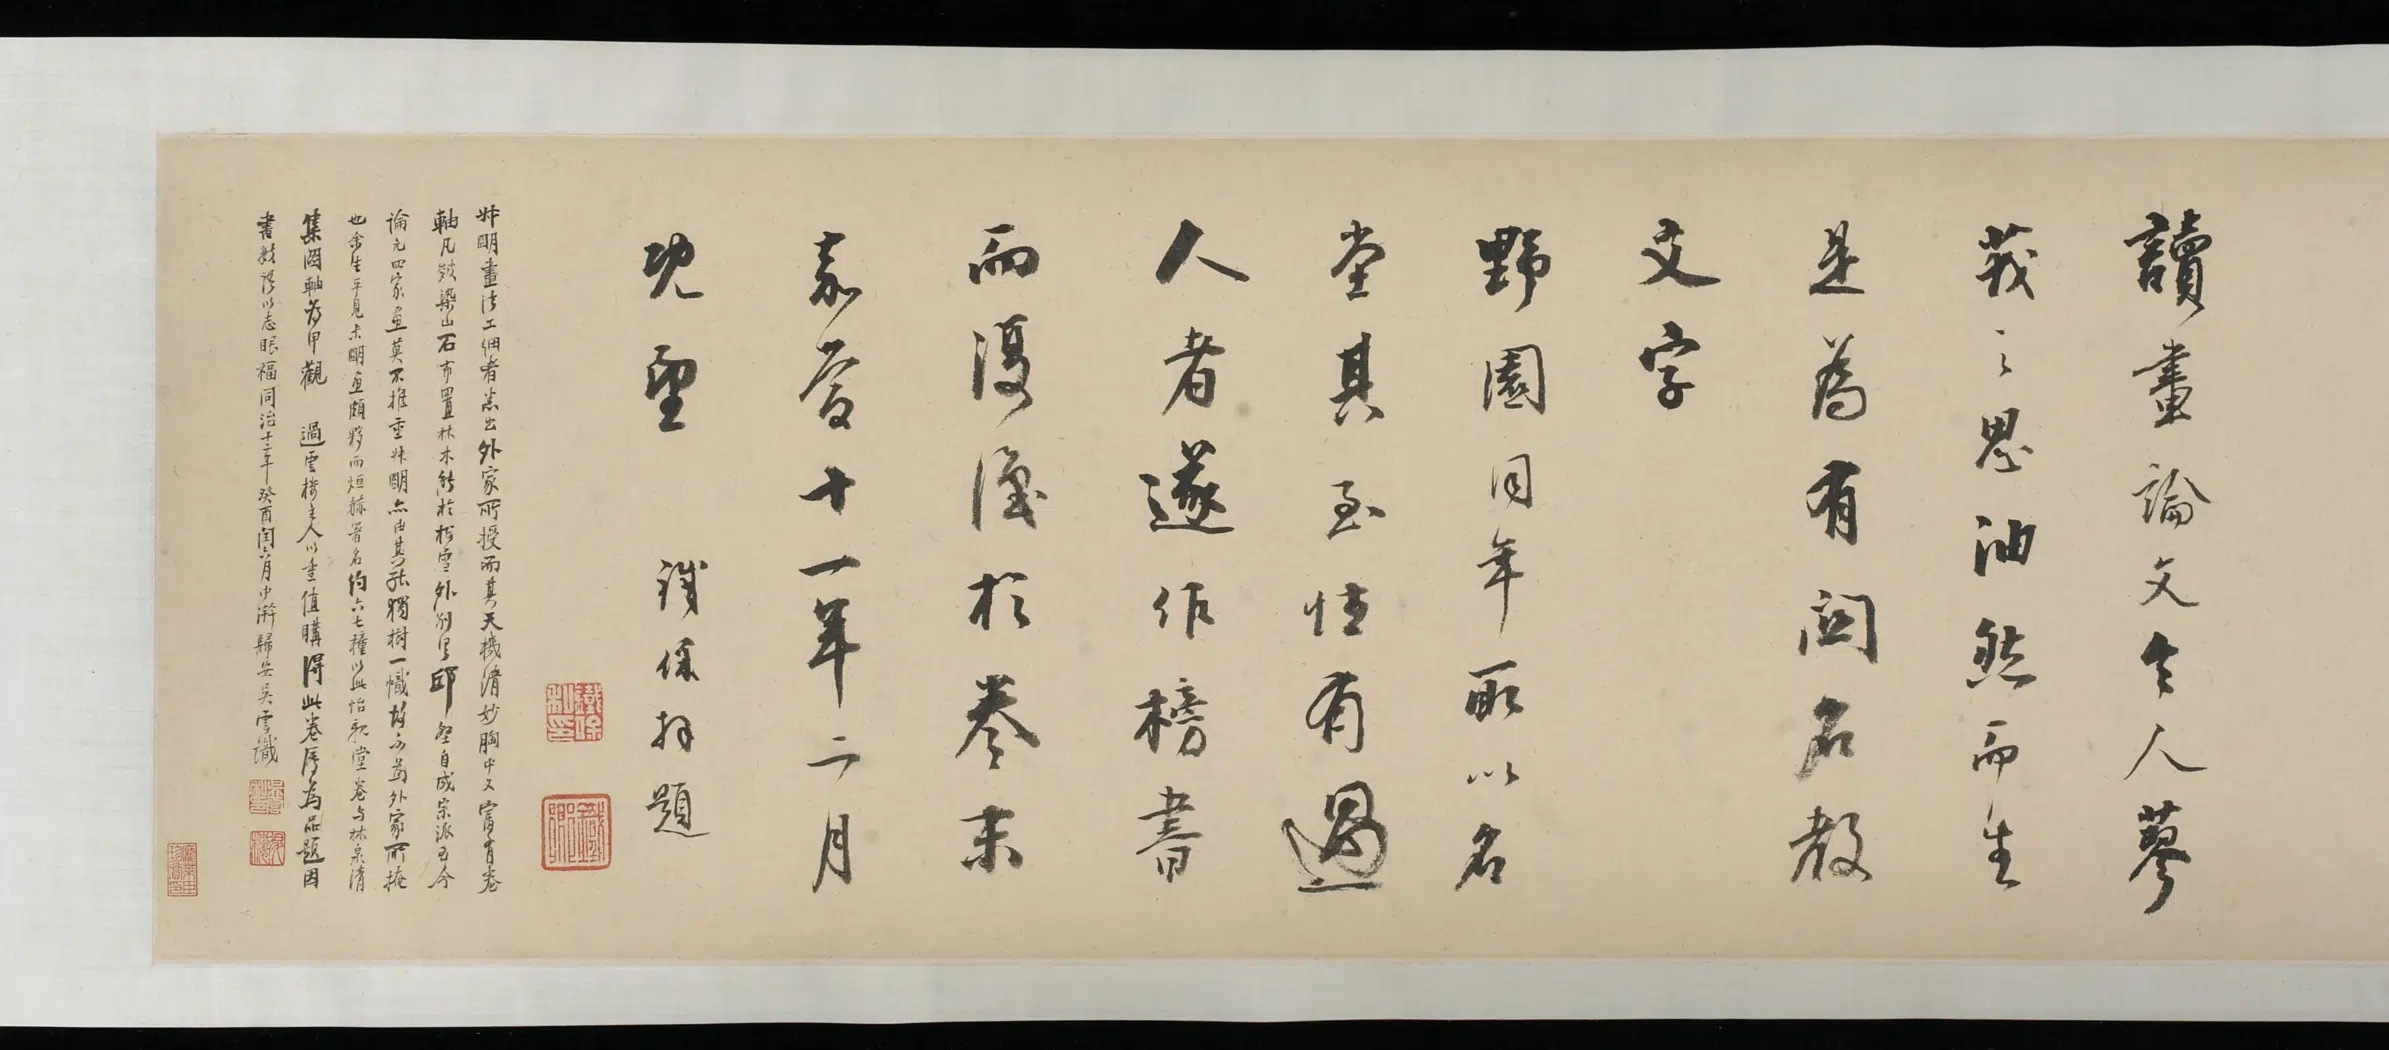 讀畫論文令人蓼
莪之思油然而生
是為有関名教
文字
野園同年取以名
堂其至性有過
人者遂作榜書
而復識於卷末
嘉慶十一年二月
既望 鐵保拜題
叔明畫法工細者悉出外家所授而其天機清妙胸中又富有卷
軸凡皴染山石布置林木能於松雪外別具邱壑自成宗派至今
論元四家画莫不推重叔明亦由其能獨樹一幟故不為外家所掩
也余生平見未明画頗夥而烜赫著名約六七種以此怡親堂卷与林泉清
集圖軸為甲觀 過雲樓主人以重值購得此卷屬為品題因
書數語以志眼福同治十二年癸酉閏六月中澣歸安吳雲識